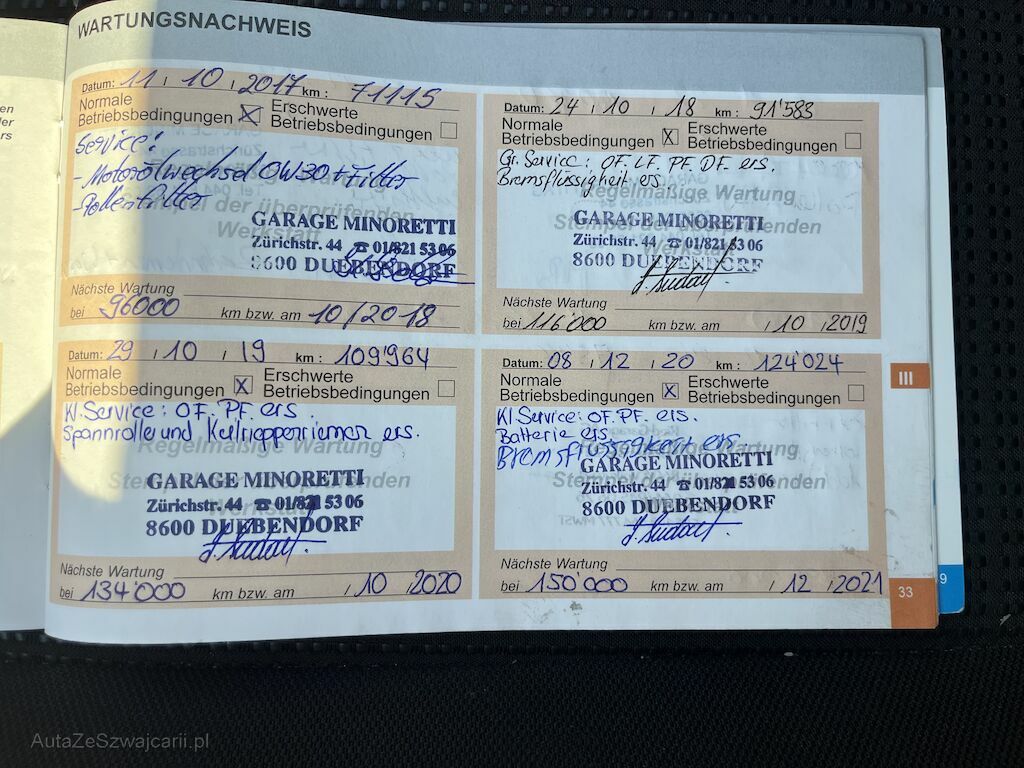 WARTUNGSNACHWEIS
Datum: 11 , 10 , 2017 km : 71115
Normale Betriebsbedingungen X Erschwerte Betriebsbedingungen
Service:
- Motorölwechsel 0W30 + Filter
- Pollenfilter
Stempel der überprüfenden
Werkstatt
GARAGE MINORETTI
Zürichstr. 44 ☎ 01/821 53 06
8600 DUEBENDORF
Nächste Wartung
bei 96000 km bzw. am 10/2018
Datum: 24 , 10 , 18 km : 91'583
Normale Betriebsbedingungen X Erschwerte Betriebsbedingungen
Gr. Service: OF. LF. PF. DF. ers.
Bremsflüssigkeit ers.
Regelmäßige Wartung
GARAGE MINORETTI
Zürichstr. 44 ☎ 01/821 53 06
8600 DUEBENDORF
Nächste Wartung
bei 116'000 km bzw. am , 10 , 2019
Datum: 29 , 10 , 19 km : 109'964
Normale Betriebsbedingungen X Erschwerte Betriebsbedingungen
Kl. Service: OF. PF. ers.
Spannrolle und Keilrippenriemen ers.
Regelmäßige Wartung
GARAGE MINORETTI
Zürichstr. 44 ☎ 01/821 53 06
8600 DUEBENDORF
Nächste Wartung
bei 134'000 km bzw. am , 10 , 2020
Datum: 08 , 12 , 20 km : 124'024
Normale Betriebsbedingungen X Erschwerte Betriebsbedingungen
Kl. Service: OF. PF. ers.
Batterie ers
Bremsflüssigkeit ers.
Wartung
GARAGE MINORETTI
Zürichstr. 44 ☎ 01/821 53 06
8600 DUEBENDORF
Nächste Wartung
bei 150'000 km bzw. am , 12 , 2021
III
33
9
AutaZeSzwajcarii.pl